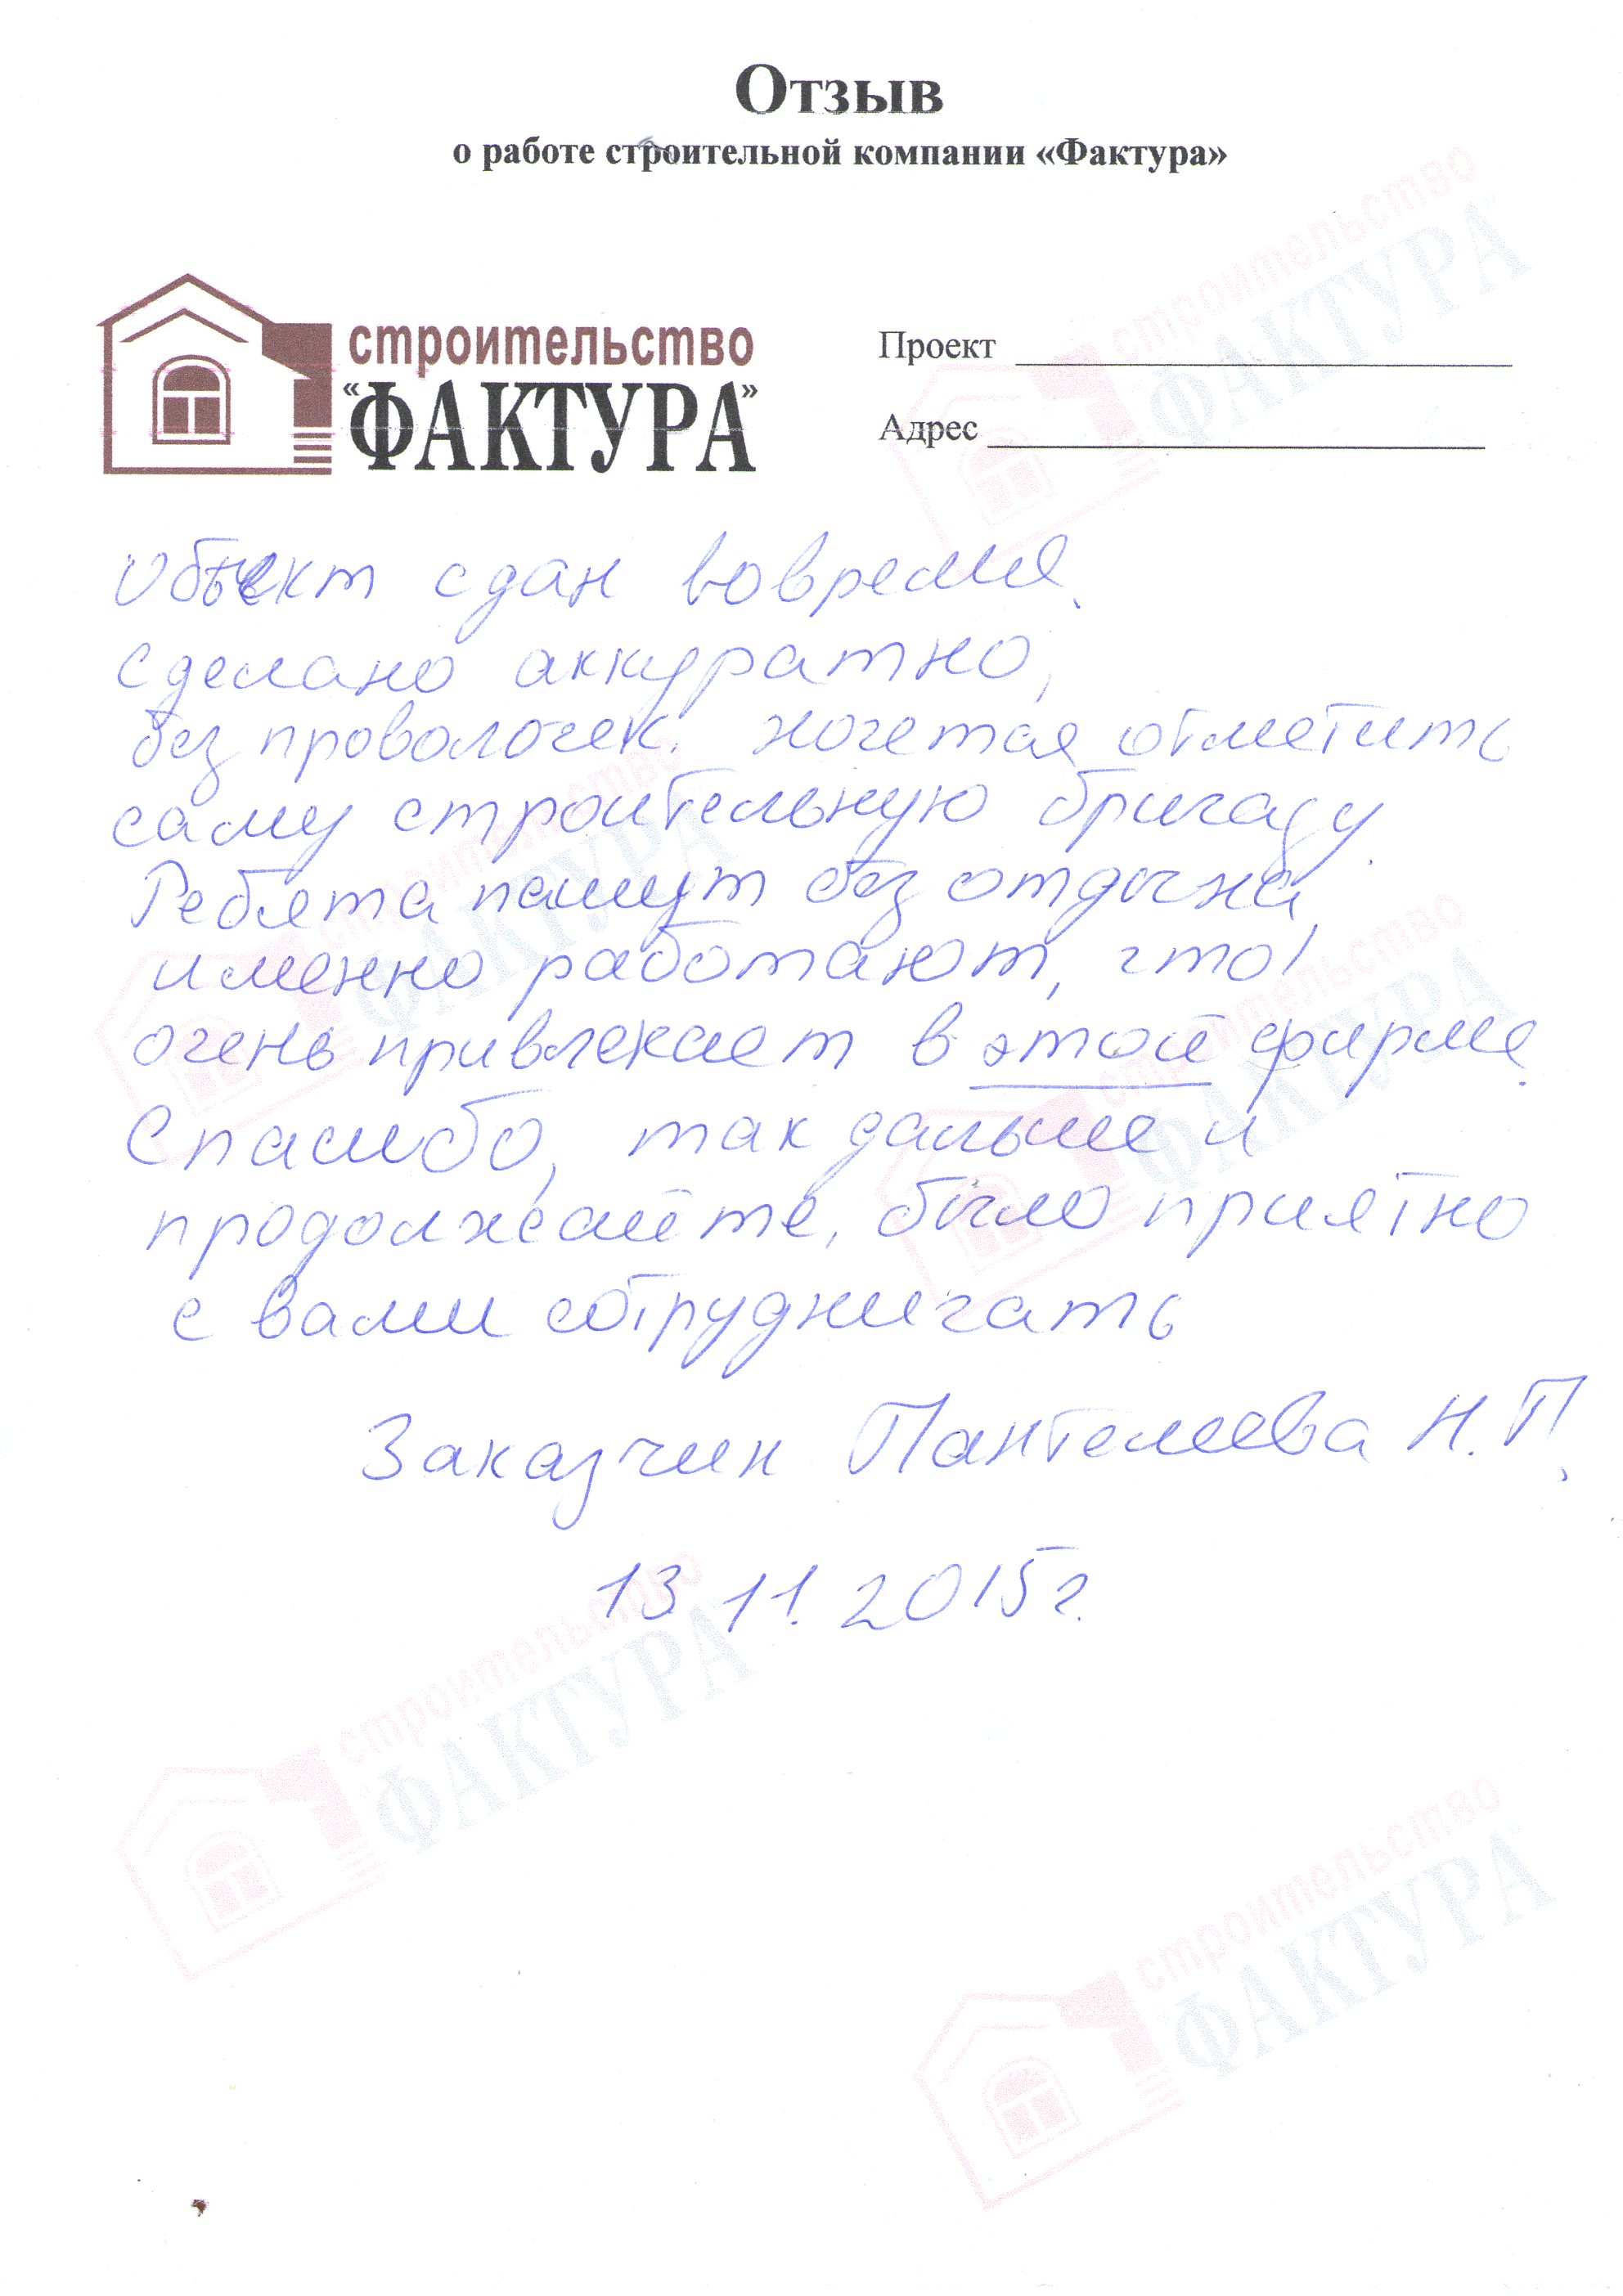 Отзыв
о работе строительной компании «Фактура»
строительство
"ФАКТУРА"
Проект
Адрес
Объект сдан вовремя.
Сделано аккуратно,
без проволочек. Хочется отметить
саму строительную бригаду.
Ребята пашут без отдыха,
именно работают, что!
очень привлекает в этой фирме.
Спасибо, так дальше и
продолжайте, было приятно
с вами сотрудничать
Заказчик Пантелеева Н.П.
13.11.2015г.
строительство
"ФАКТУРА"
строительство
"ФАКТУРА"
строительство
"ФАКТУРА"
строительство
"ФАКТУРА"
строительство
"ФАКТУРА"